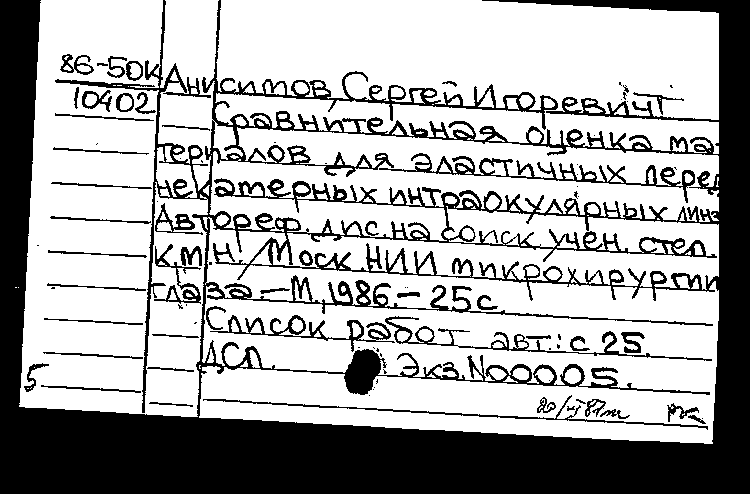 86-50К Анисимов, Сергей Игоревич
10402 Сравнительная оценка ма-
териалов для эластичных перед
некамерных интраокулярных линз
Автореф. дис. на соиск. учен. степ.
к.м.н. / Моск. НИИ микрохирургии
глаза. – М., 1986. – 25 с.
Список работ авт.: с. 25.
ДСП. Экз. N00005.
5